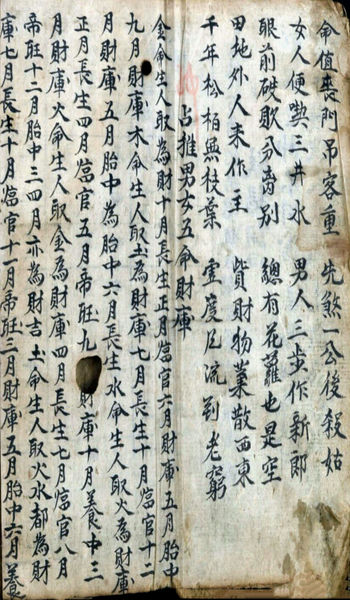 命值喪門吊客重 先煞一公後殺姑
女人便喫三井水 男人三步作新郎
眼前破敗分离別 總有花蘿也是空
田地外人来作主 貲財物業散西東
千年松栢無枝葉 虚度尼流到老窮
占推男女五命財庫
金命生人取為財十月長生正月臨官六月財庫五月胎中
九月財庫木命生人取土為財庫七月長生十月臨官十二
月財庫五月胎中為胎中六月長生水命生人取火為財庫
正月長生四月臨官五月帝旺九財庫十月養中三
月財庫火命生人取金為財庫四月長生七月臨官八月
帝旺十二月胎中三四月亦為財吉土命生人取火水都為財
庫七月長生十月臨官十一月帝旺三月財庫五月胎中六月養